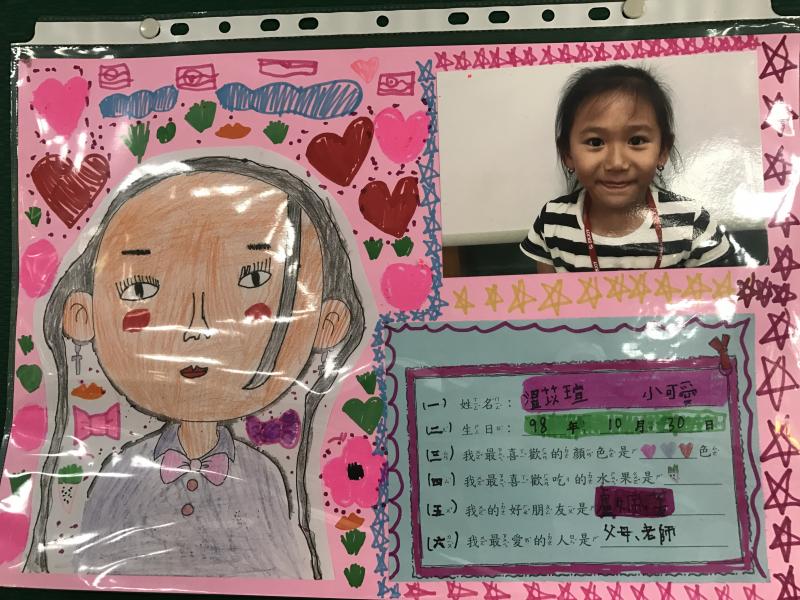 (一) 姓名: 溫苡瑄 小可愛
(二) 生日: 98 年 10 月 30 日
(三) 我最喜歡的顏色是 色
(四) 我最喜歡吃的水果是
(五) 我的好朋友是
(六) 我最愛的人是 父母、老師